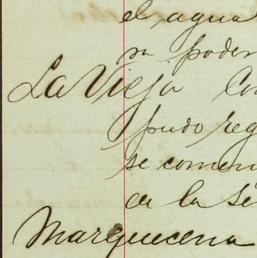 el agua
su poder
La Vieja Co
pudo reg
se comen
en la Se
Marquecena